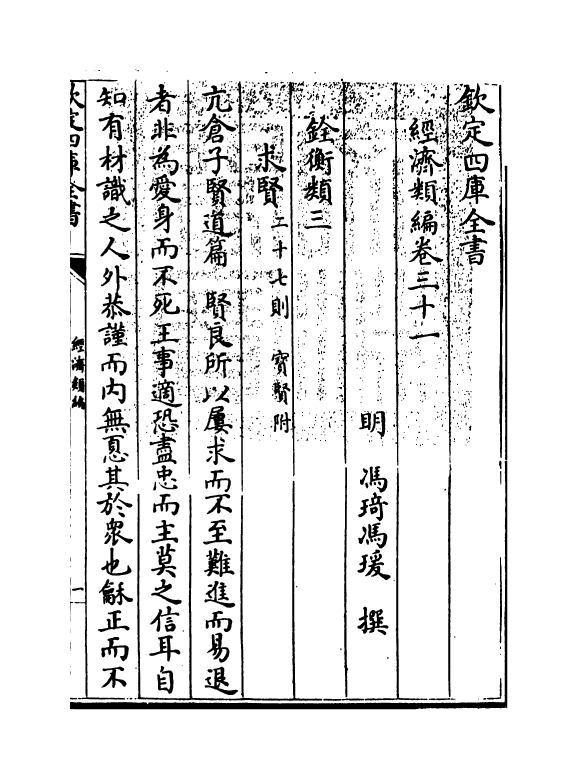 欽定四庫全書
經濟類編卷三十一
明 馮琦馮瑗 撰
銓衡類三
求賢二十七則 寳賢附
亢倉子賢道篇 賢良所以屢求而不至難進而易退
者非為愛身而不死王事適恐盡忠而主莫之信耳自
知有材識之人外恭謹而内無憂其於衆也龢正而不
欽定四庫全書
經濟類編
一